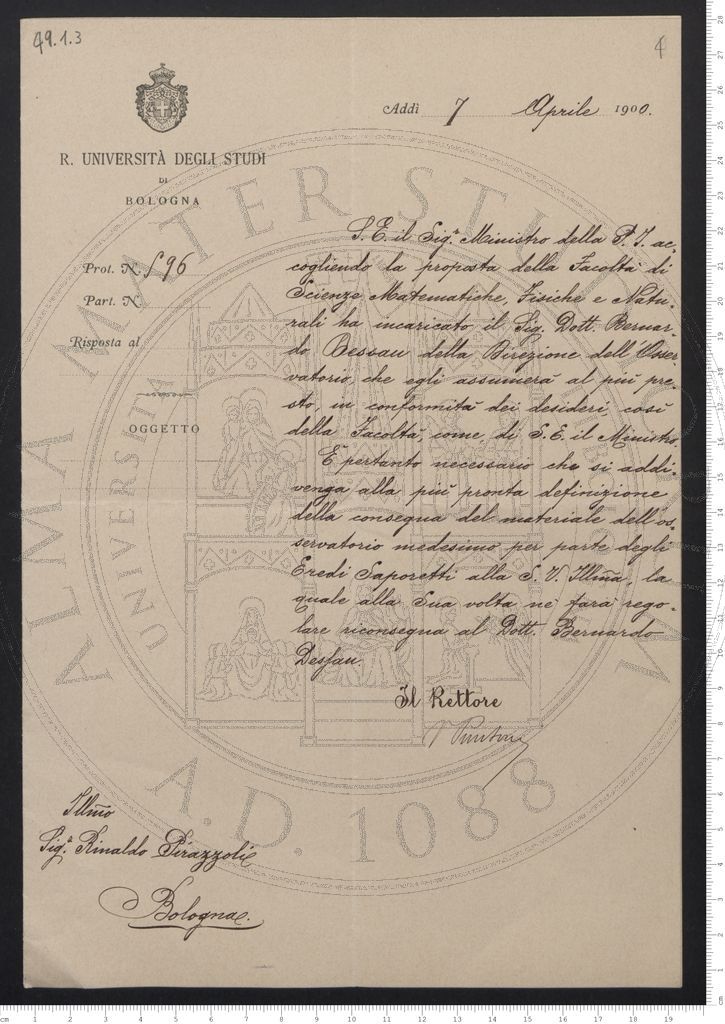 49.1.3
4
Addì 7 Aprile 1900.
R. UNIVERSITÀ DEGLI STUDI
DI
BOLOGNA
Prot. N. 596
Part. N.
Risposta al
OGGETTO
S. E. il Sig.r Ministro della P. I. ac-
cogliendo la proposta della Facoltà di
Scienze Matematiche, Fisiche e Natu-
rali ha incaricato il Sig. Dott. Bernar-
do Dessau della Direzione dell'Osser-
vatorio, che egli assumerà al più pre-
sto, in conformità dei desideri, così
della Facoltà, come, di S. E. il Ministro.
È pertanto necessario che si addi-
venga alla più pronta definizione
della consegna del materiale dell'os-
servatorio medesimo per parte degli
Eredi Saporetti alla S. V. Illma, la
quale alla sua volta ne farà rego-
lare riconsegna al Dott. Bernardo
Dessau.
Il Rettore
V Puntoni
Illmo
Sig.r Rinaldo Pirazzoli
Bologna.
ALMA MATER STUDIORUM
UNIVERSITAS
A.D. 1088